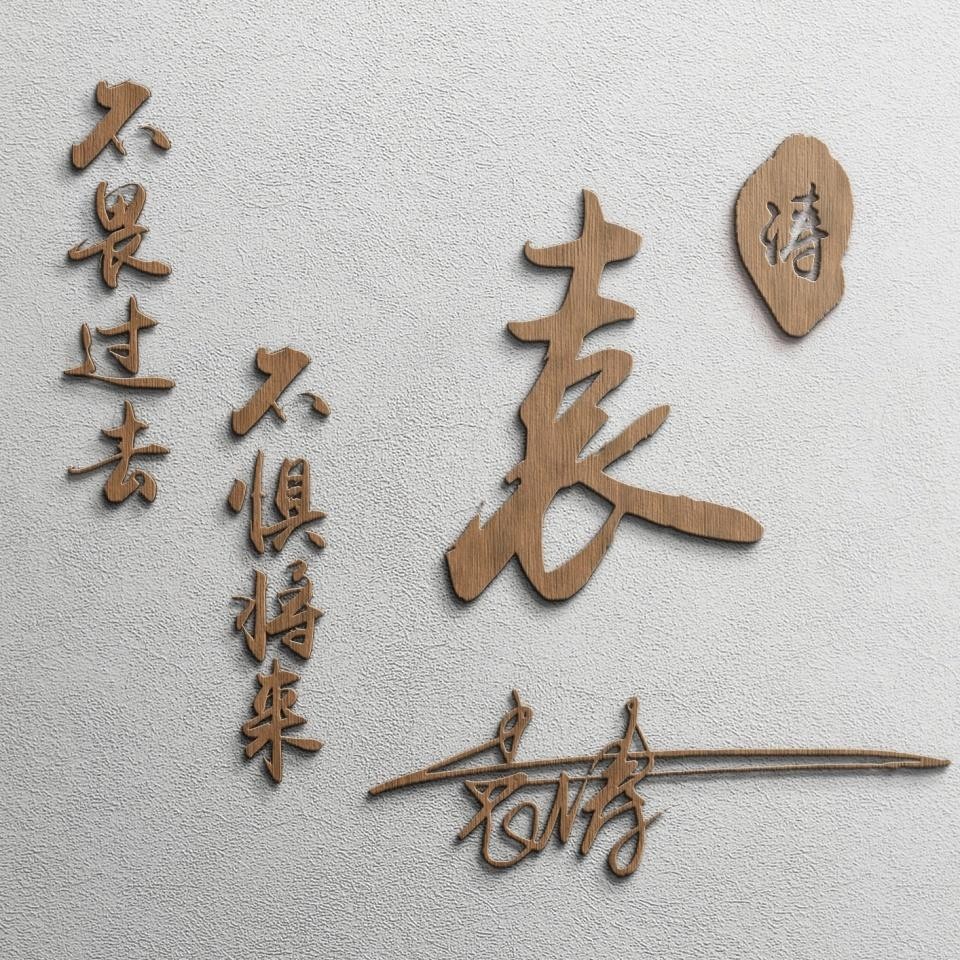 不畏过去
不惧将来
袁
涛
袁涛